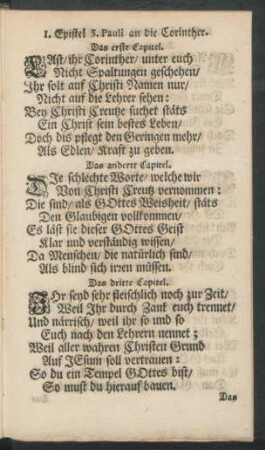 1. Epistel S. Pauli an die Corinther.
Das erste Capitel.
LAst/ ihr Corinther/ unter euch
Nicht Spaltungen geschehen/
Ihr solt auf Christi Namen nur/
Nicht auf die Lehrer sehen:
Bey Christi Creutze suchet stäts
Ein Christ sein bestes Leben/
Doch dis pflegt den Geringen mehr/
Als Edlen/ Kraft zu geben.
Das andere Capitel.
DIe schlechte Worte/ welche wir
Von Christi Creutz vernommen:
Die sind/ als GOttes Weisheit/ stäts
Den Glaubigen vollkommen/
Es läst sie dieser GOttes Geist
Klar und verständig wissen/
Da Menschen/ die natürlich sind/
Als blind sich irren müssen.
Das dritte Capitel.
IHr seyd sehr fleischlich noch zur Zeit/
Weil Ihr durch Zank euch trennet/
Und närrisch/ weil ihr so und so
Euch nach den Lehrern nennet;
Weil aller wahren Christen Grund
Auf JEsum soll vertrauen:
So du ein Tempel GOttes bist/
So must du hierauf bauen.
Das